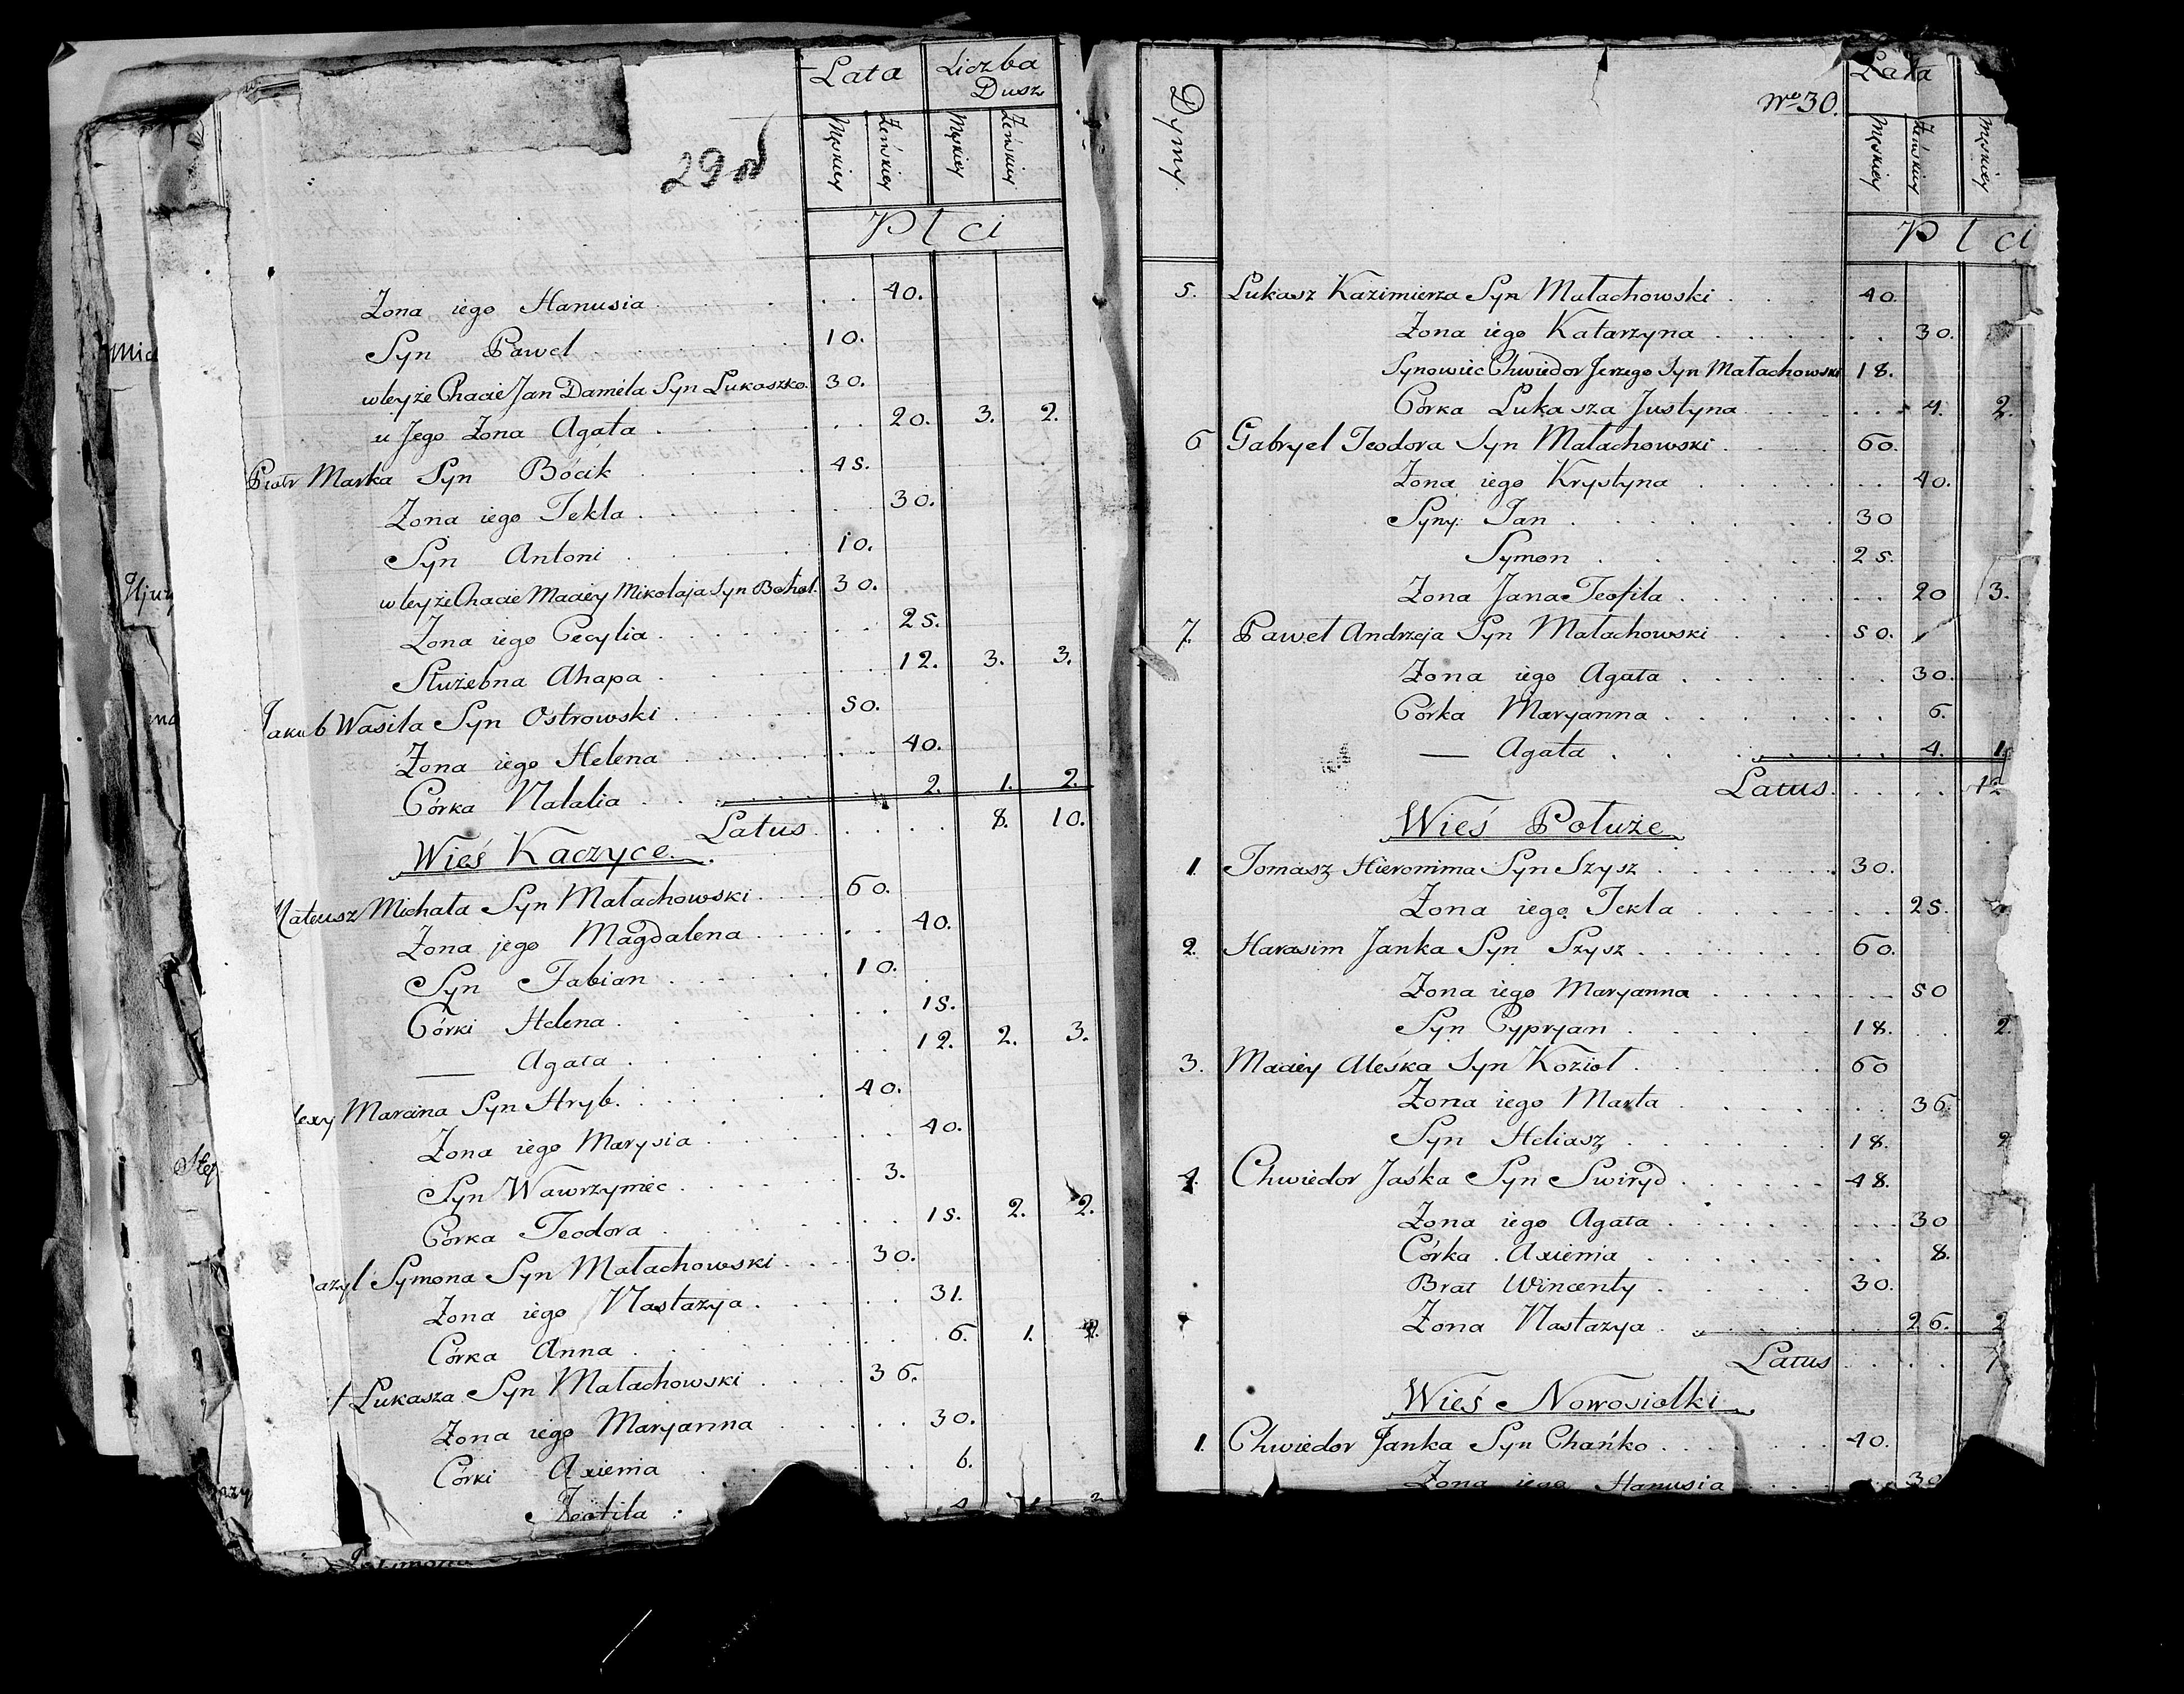 Lata Liczba Dusz
Męskiey Żeńskiey Męskiey Żeńskiey
29
Płci
Żona iego Hanusia 40.
Syn Paweł 10.
w teyże Chacie Jan Daniela Syn Łukaszko. 30.
u Jego Żona Agata 20. 3. 2.
Piotr Marka Syn Bócik 45.
Żona iego Tekla 30.
Syn Antoni 10.
w teyże Chacie Maciey Mikołaja Syn 30.
Żona iego Cecylia 25.
Służebna Ahapa 12. 3. 3.
Jakub Wasila Syn Ostrowski 50.
Żona iego Helena 40.
Córka Natalia 2. 1. 2.
Latus 8. 10.
Wieś Kaczyce.
Mateusz Michała Syn Małachowski 60.
Żona jego Magdalena 40.
Syn Fabian 10.
Córki Helena 15.
— Agata 12. 2. 3.
lexy Marcina Syn Hryb. 40.
Żona iego Marysia 40.
Syn Wawrzyniec 3.
Córka Teodora 15. 2. 2.
azyl Symona Syn Małachowski 30.
Żona iego Nastazya 31.
Córka Anna 6. 1. 2.
Łukasza Syn Małachowski 36.
Żona iego Maryanna 30.
Córki Axienia 6.
Teofila
Dymy.
No 30.
Lata
Męskiey Żeńskiey Męskiey
Płci
5. Łukasz Kazimierza Syn Małachowski 40.
Żona iego Katarzyna 30.
Synowiec Chwiedor Jerzego Syn Małachowski 18.
Córka Łukasza Justyna 4. 2.
6 Gabryel Teodora Syn Małachowski 60.
Żona iego Krystyna 40.
Syny: Jan 30
Symon 25.
Żona Jana Teofila 20 3.
7. Paweł Andrzeja Syn Małachowski 50.
Żona iego Agata 30.
Córka Maryanna 6.
— Agata 4. 1.
Latus. 12
Wieś Połuże
1 Tomasz Hieronima Syn Szysz 30.
Żona iego Tekla 25.
2. Harasim Janka Syn Szysz 60.
Żona iego Maryanna 50
Syn Cypryan 18. 2.
3. Maciey Aleśka Syn Kozioł 60
Żona iego Marta 36.
Syn Heliasz 18. 2
4. Chwiedor Jaśka Syn Swiryd 48.
Żona iego Agata 30
Córka Axienia 8.
Brat Wincenty 30.
Żona Nastazya 26. 2
Latus 7
Wieś Nowosiołki
1. Chwiedor Janka Syn Chańko 40.
Żona iego Hanusia 30